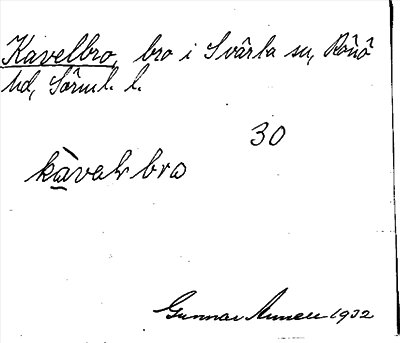 Kavelbro, bro i Svärta sn, Rönö
hd, Sörml. l.
30
kàvalbro
Gunnar Linnell 1932